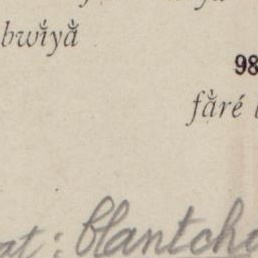 bwĭyằ
98
fằré
at : blantch